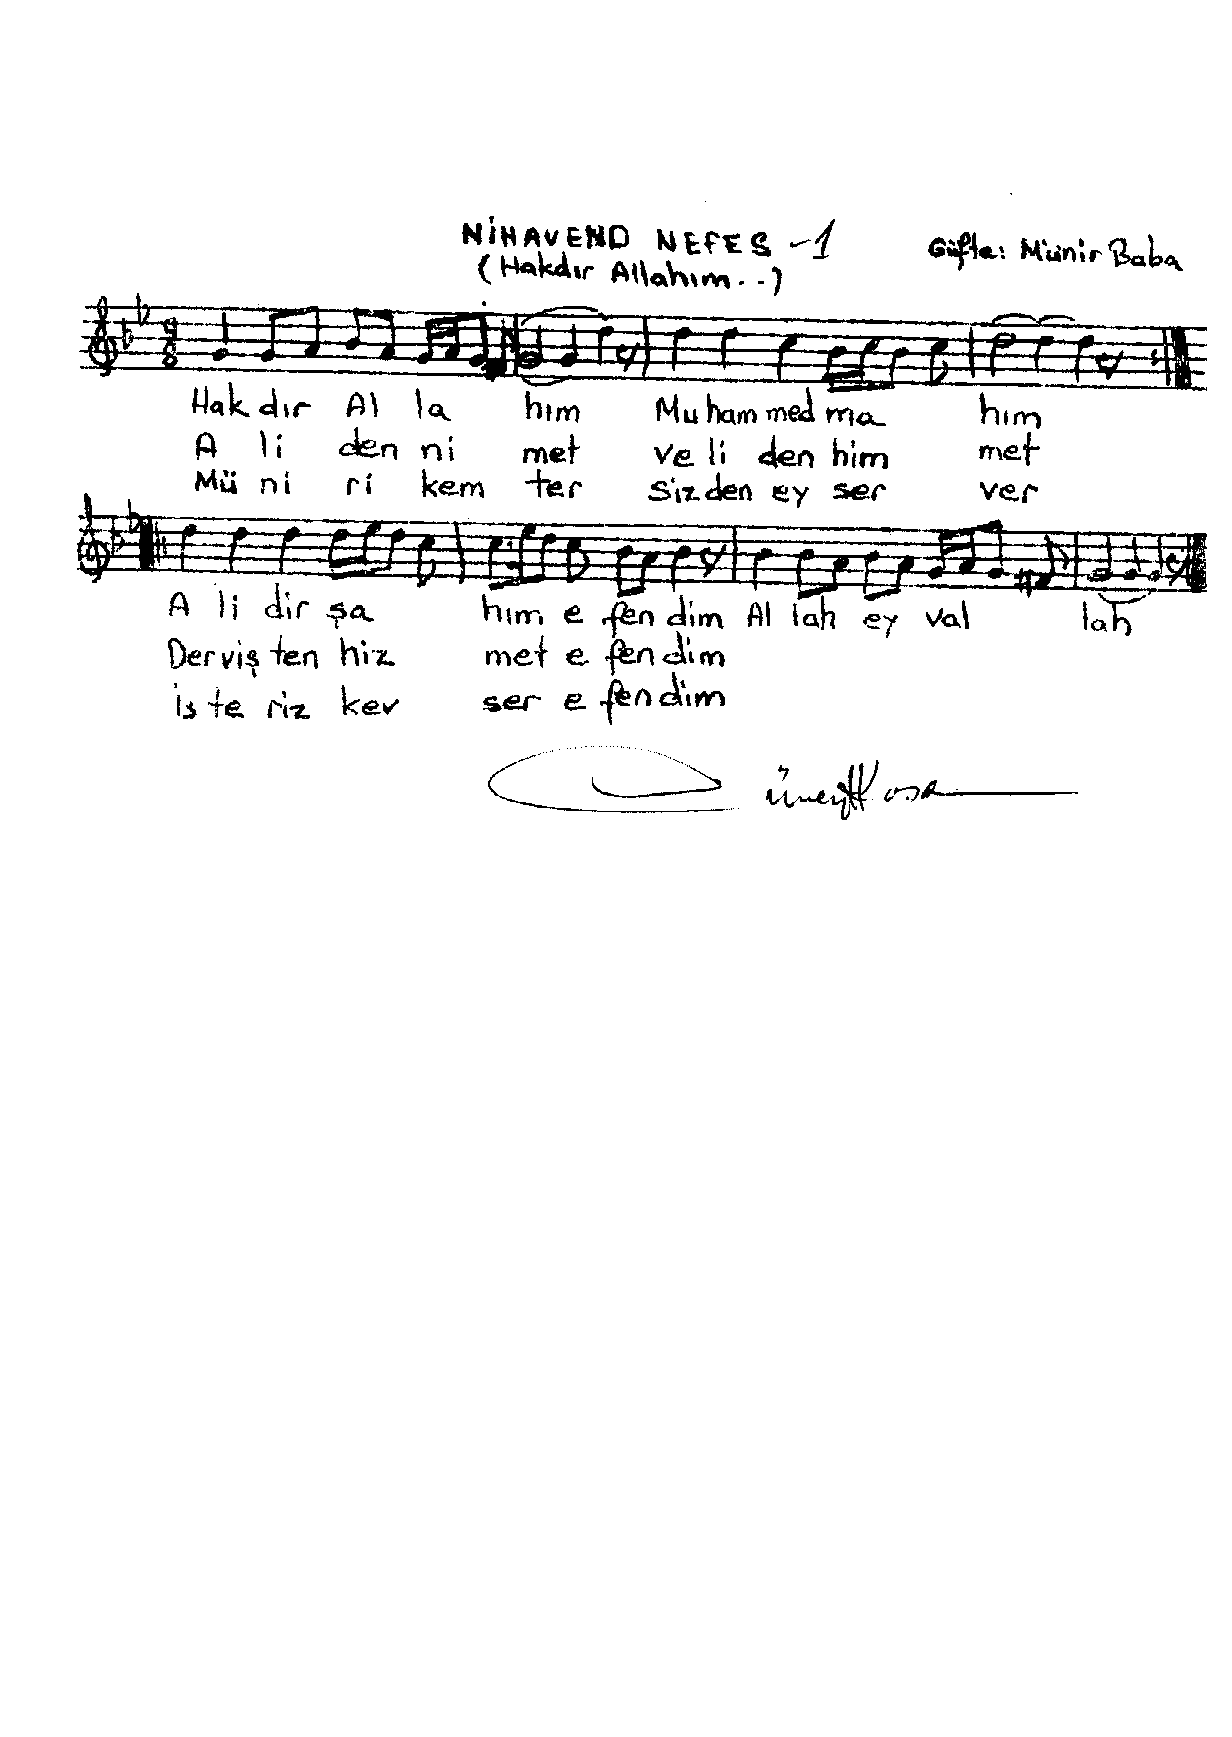 NİHAVEND NEFES -1
(Hakdır Allahım..)
Güfte: Münir Baba
9
8
Hak dır Al la hım Muham med ma hım
A li den ni met ve li den him met
Mü ni ri kem ter siz den ey ser ver
A li dir şa hım e fen dim Al lah ey val lah
Derviş ten hiz met e fen dim
İs te riz kev ser e fen dim